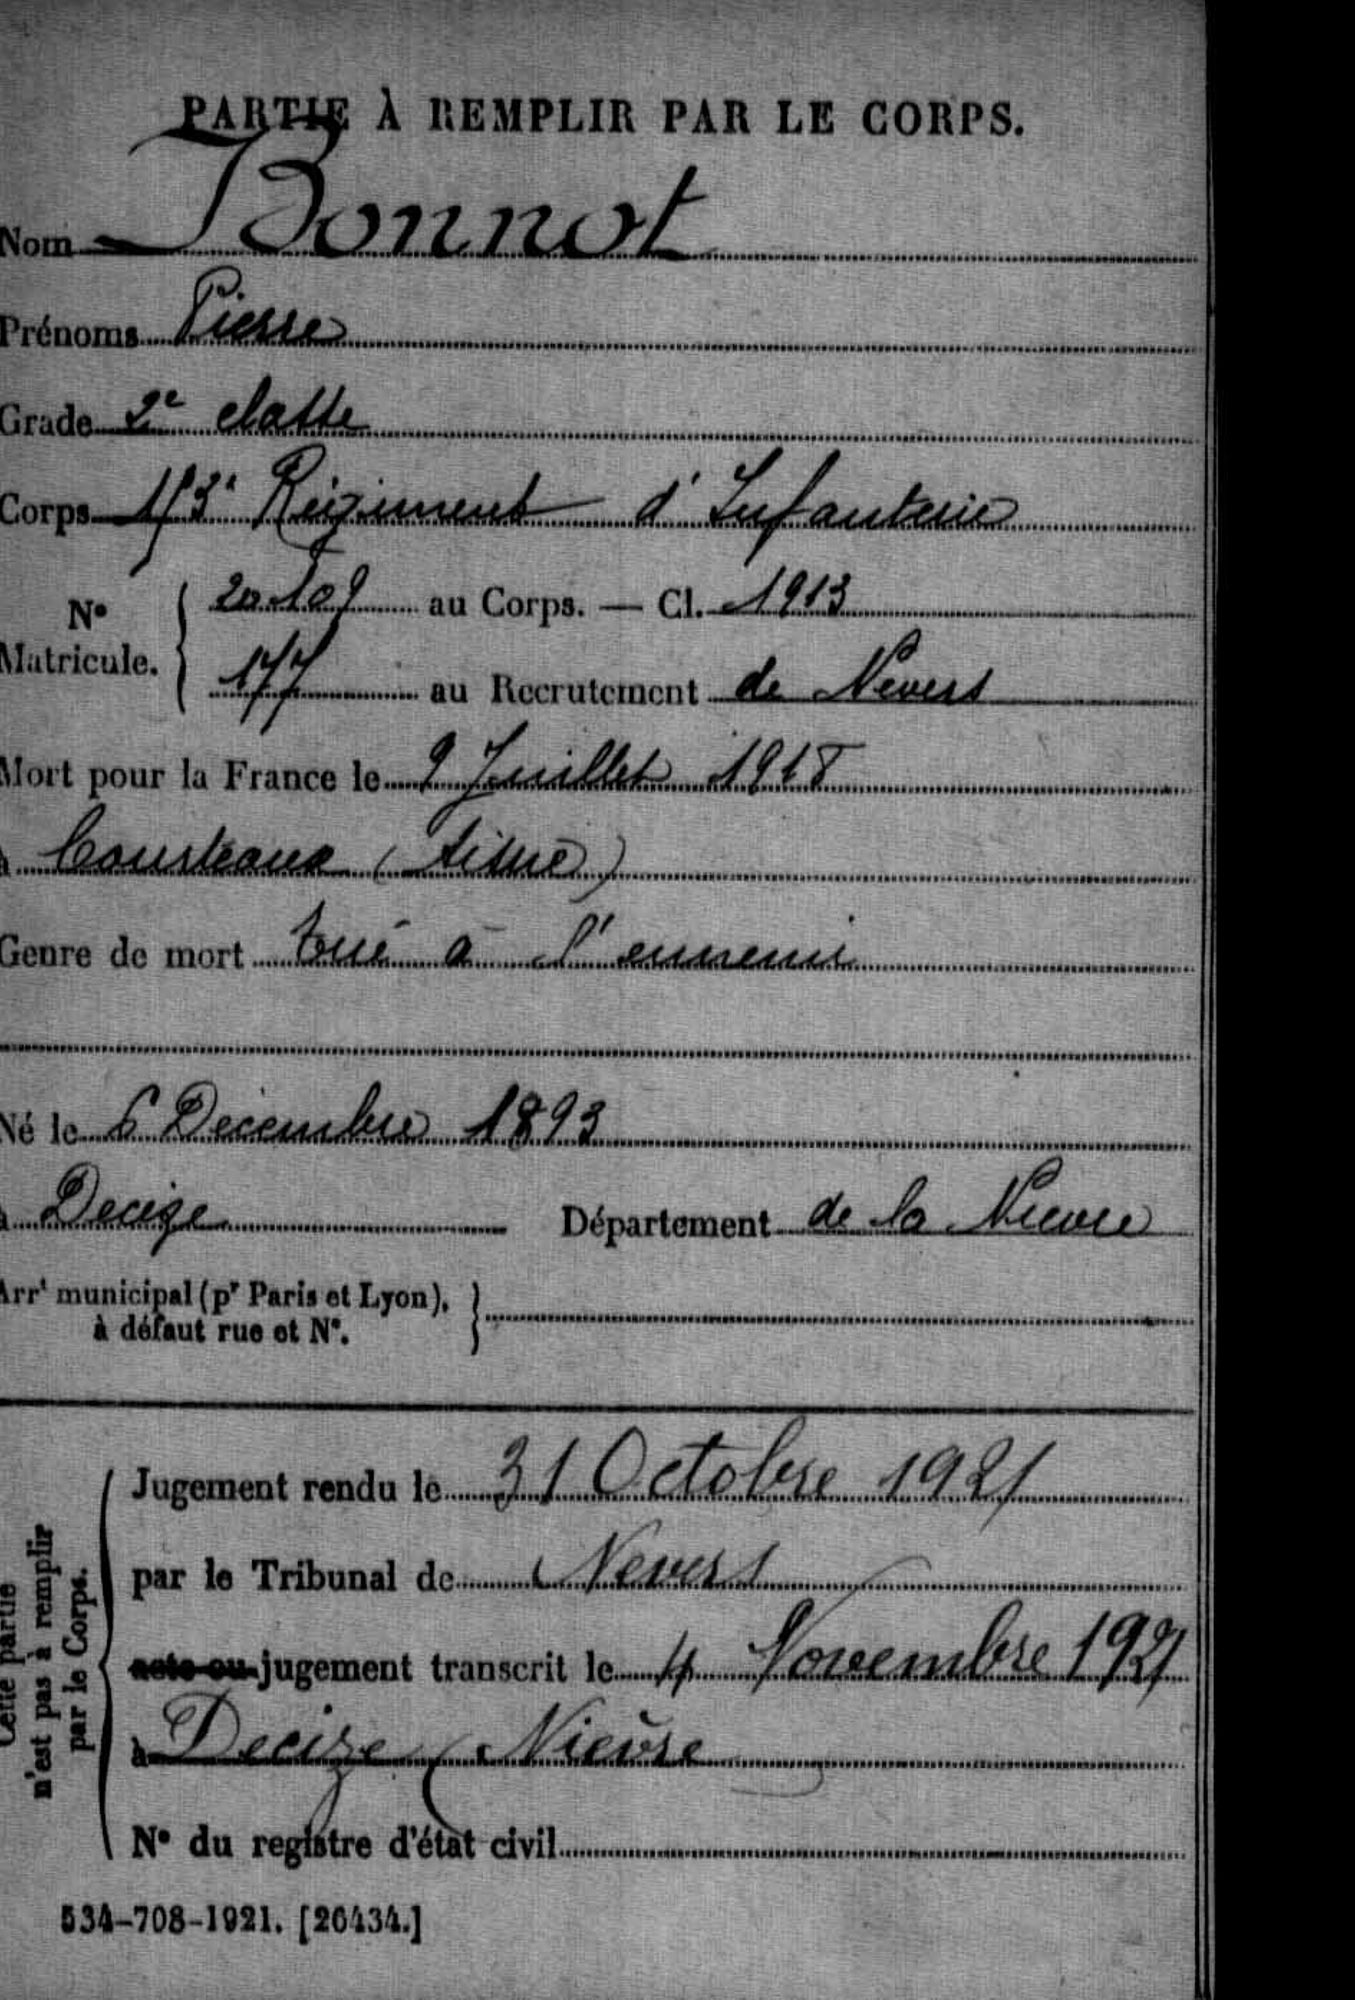 PARTIE À REMPLIR PAR LE CORPS.
Nom Bonnot
Prénoms Pierre
Grade 2e classe
Corps Régiment d'Infanterie
No Matricule. { 20109 au Corps. — Cl. 1913
177 au Recrutement de Nevers
Mort pour la France le 9 Juillet 1918
à (Aisne)
Genre de mort tué à l'ennemi
Né le 6 Décembre 1893
à Decize Département de la Nièvre
Arrt municipal (pr Paris et Lyon), }
à défaut rue et No.
Cette partie
n'est pas à remplir
par le Corps.
Jugement rendu le 31 Octobre 1921
par le Tribunal de Nevers
acte ou jugement transcrit le 4 Novembre 1921
à Decize (Nièvre
No du registre d'état civil
534-708-1921. [26434.]